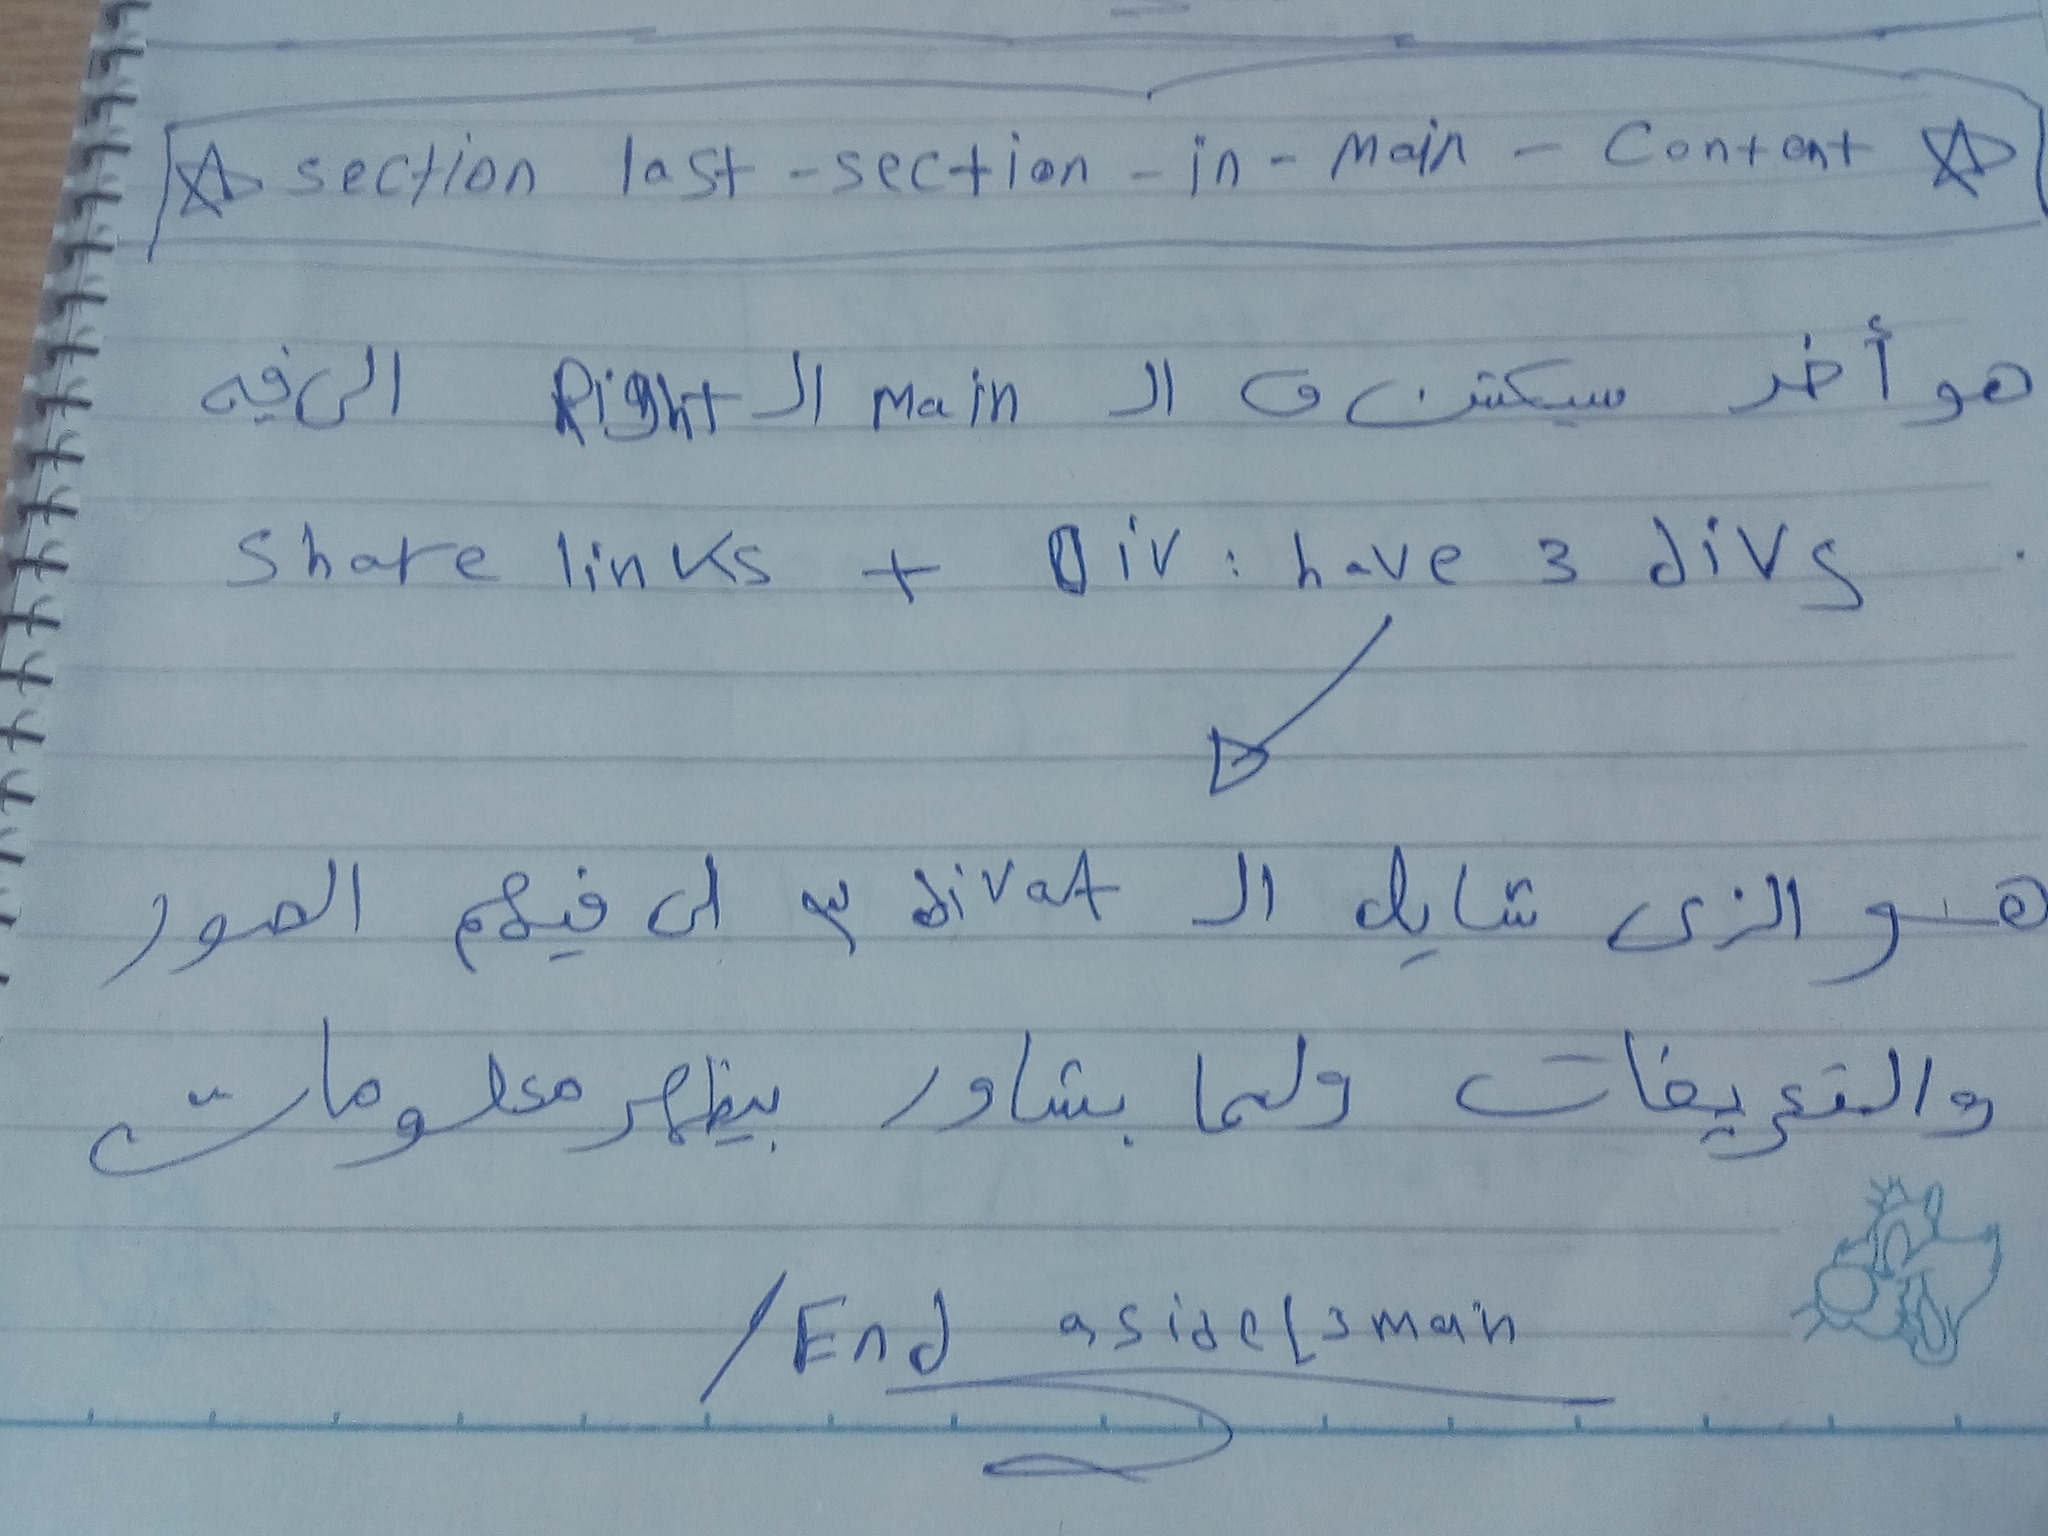 ☆ section last-section-in-main-content ☆
هو أخر سيكشن ف ال main ال Right الى فيه
share links + Div : have 3 divs
هو الزى شايل ال divat ٣ الى فيهم الصور
والتعريفات ولما بشاور بيظهر معلومات
/End aside{3main